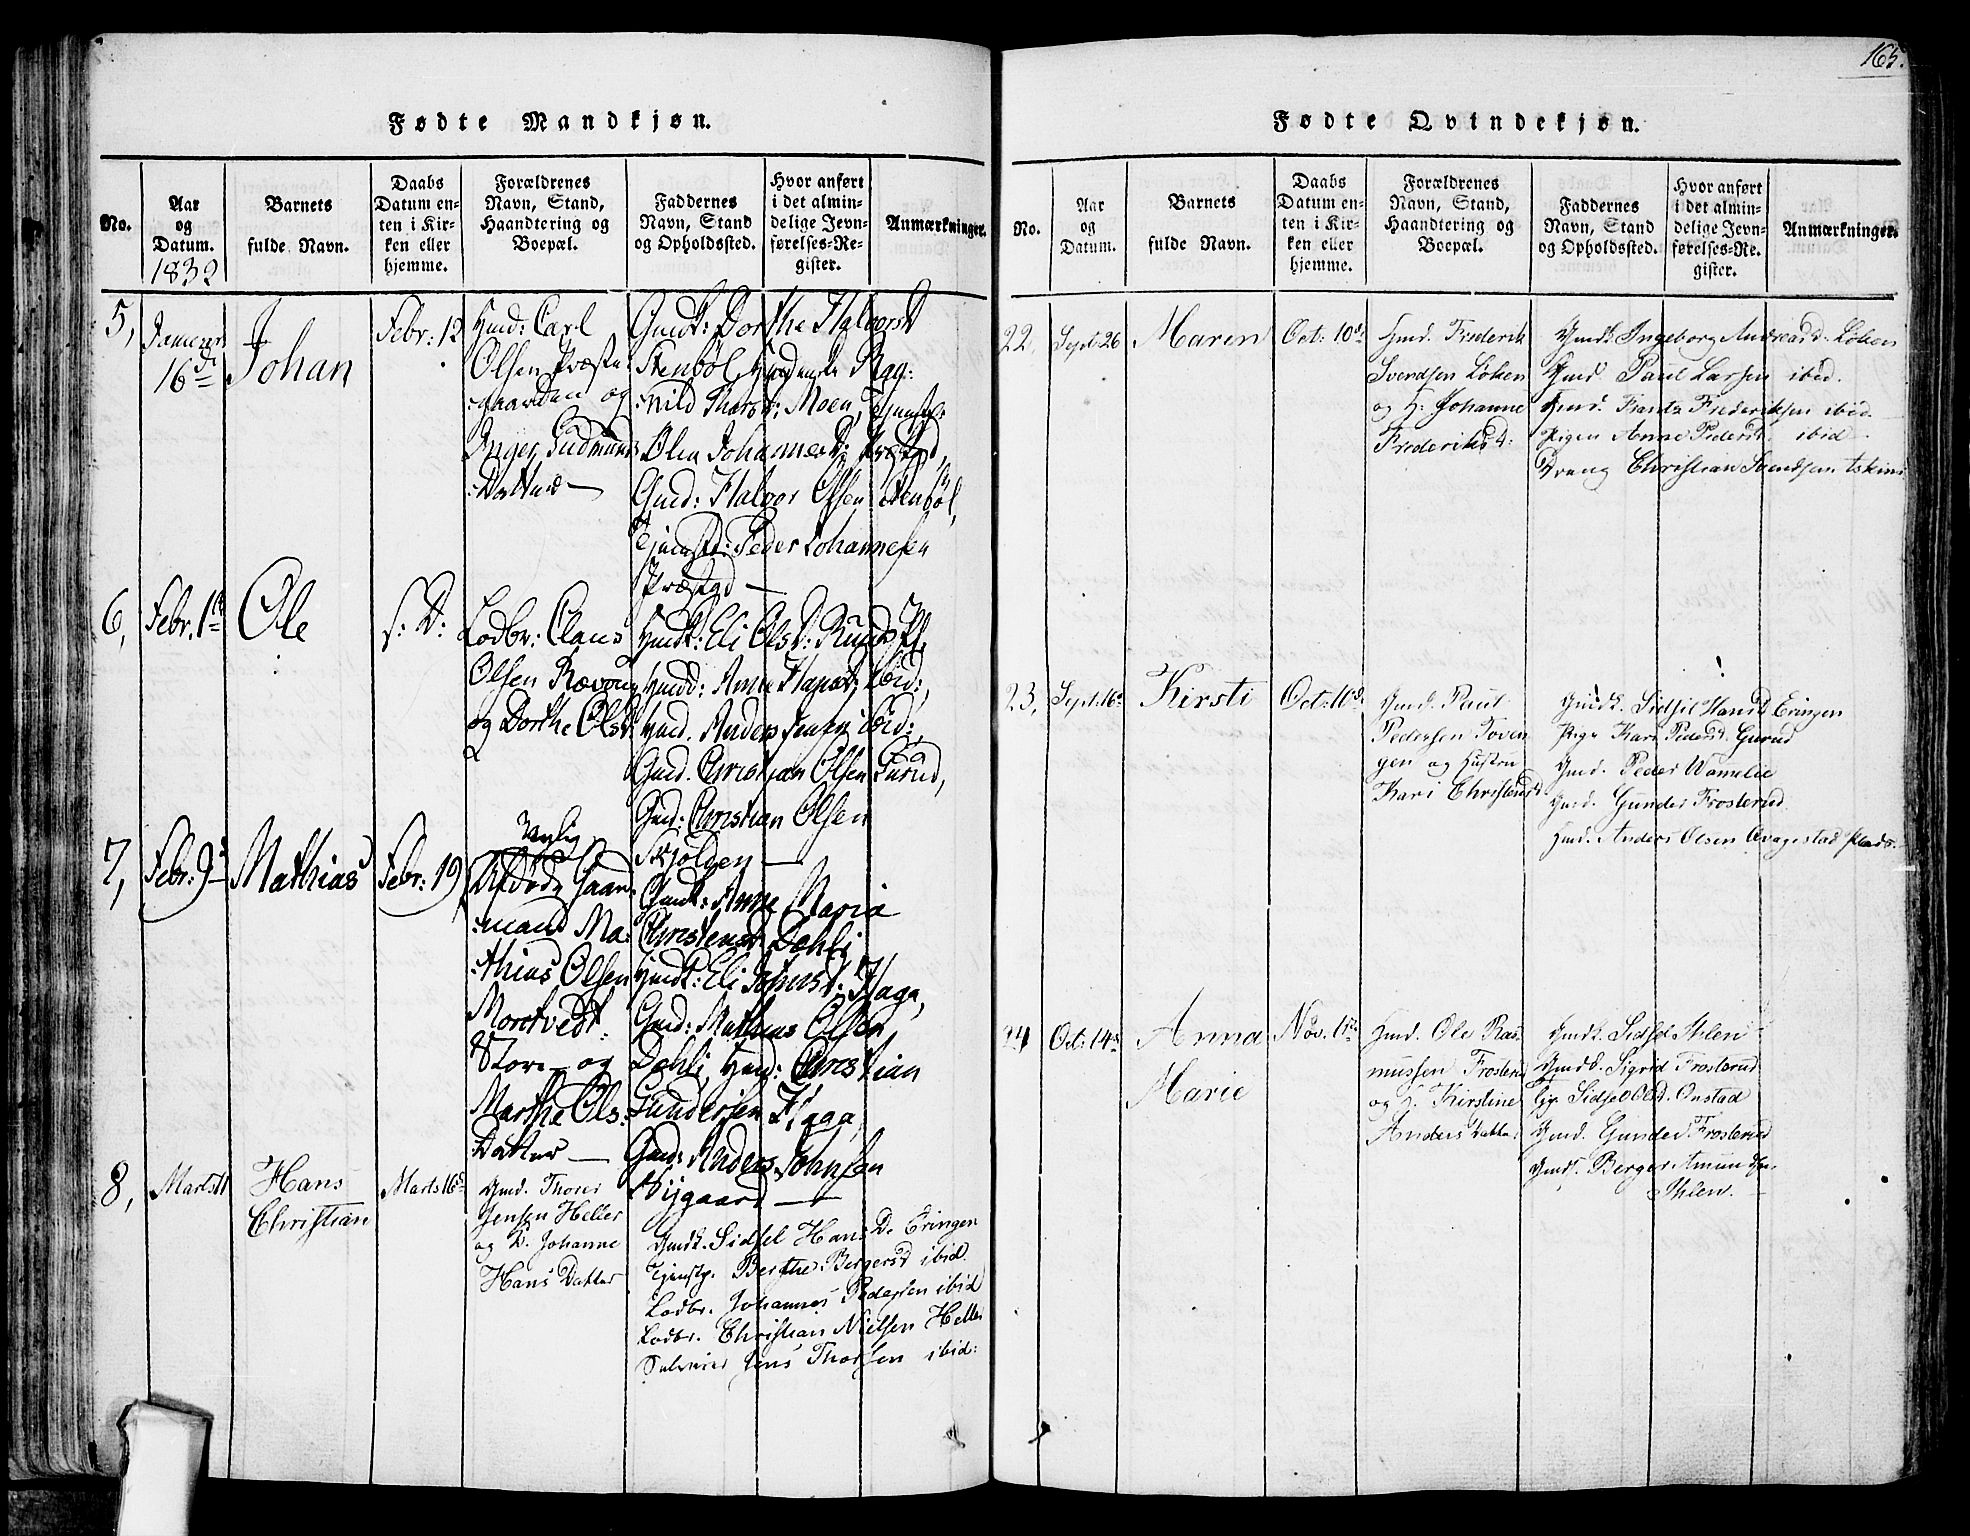 Fødte Mandkjøn.
No.
Aar og Datum.
1832
Barnets fulde Navn.
Daabs Datum enten i Kirken eller hjemme.
Forældrenes Navn, Stand, Haandtering og Boepæl.
Faddernes Navn, Stand og Opholdssted.
Hvor anført i det almindelige Jevnførelses-Register.
Anmærkninger.
5,
Januar
16de
Johan
Febr: 12
Hmd: Carl
Olsen Præste
gaarden og
Inger Gudmunds
Datter
Gmdk: Dorthe Halvorsd
Stenbøl, Ragnild Moen,
Olea Johannesd: Præstgd,
Gmd: Halvor Olsen Stenbøl,
Tjenestd: Peder Johannesen
Præstgd
6,
Febr. 1ste
Ole
s: D:
Lodbr: Claus
Olsen
og Dorthe Olsd
Hmdk: Eli Olsd: Ruud
Hmdk: Anne ibid:,
Hmd. Anders Jensen ibid:,
Gmd. Christian Olsen Gurud,
Gmd: Christian Olsen
Skjolden
7,
Febr: 9de
Mathias
Febr: 19
Afdøde Gaardmand
Mathias Olsen
Mortvedt
Store og
Marthe Ols
Datter
Gmdk: Anne Maria
Christensd Dæhli
Hmdk: Eli Johnsd: Haga,
Gmd: Mathias Olsen
Dæhli, Hmd: Christian
Gundersen Haga,
Gmd: Anders Johnsen
Nygaard
8,
Marts 11
Hans
Christian
Marts 16de
Gmd. Thorer
Jensen Heller
og K. Johanne
Hans Datter
Gmdk. Sidsel Hans D. Eringen
Tjenstp. Berthe Bergersd ibid.
Lodbr. Johannes Pedersen ibid
Lodbr. Christian Nielsen Heller
Selveier Jens Thorsen ibid:
165.
Fødte Qvindekjøn.
No.
Aar og Datum.
Barnets fulde Navn.
Daabs Datum enten i Kirken eller hjemme.
Forældrenes Navn, Stand, Haandtering og Boepæl.
Faddernes Navn, Stand og Opholdssted.
Hvor anført i det almindelige Jevnførelses-Register.
Anmærkninger.
22,
Sept. 26
Maren
Oct: 10de
Hmd. Frederik
Svendsen Løken
og H. Johanne
Frederiksd:
Gmdk. Ingeborg Andreasd. Løken
Gmd. Paul Larsen ibid.
Hmd. Frantz Frederiksen ibid.
Pigen Anne Pedersd. ibid
Dreng Christian Svendsen
23,
Sept. 16de
Kirsti
Oct: 10de
Gmd. Paul
Pedersen Toven
gen og Hustru
Kari Christensd.
Gmdk. Sidsil Hansd Eringen
Pige Kari Pedersd. Gurud
Gmd. Peder Wamelie
Gmd. Gunder Frosterud
Hmd. Anders Olsen Qvagestad Plads.
24
Oct: 14de
Anna
Marie
Nov. 1ste
Hmd. Ole Ras
mussen Frosterud
og H. Kirstine
Anders Datter
Gmdk. Sidsel Ihlen
Gmdk. Sigrid Frosterud
Pig. Sidsel Olsd. Onstad
Gmd. Gunder Frosterud
Gmds. Berger Amundsen
Ihlen.